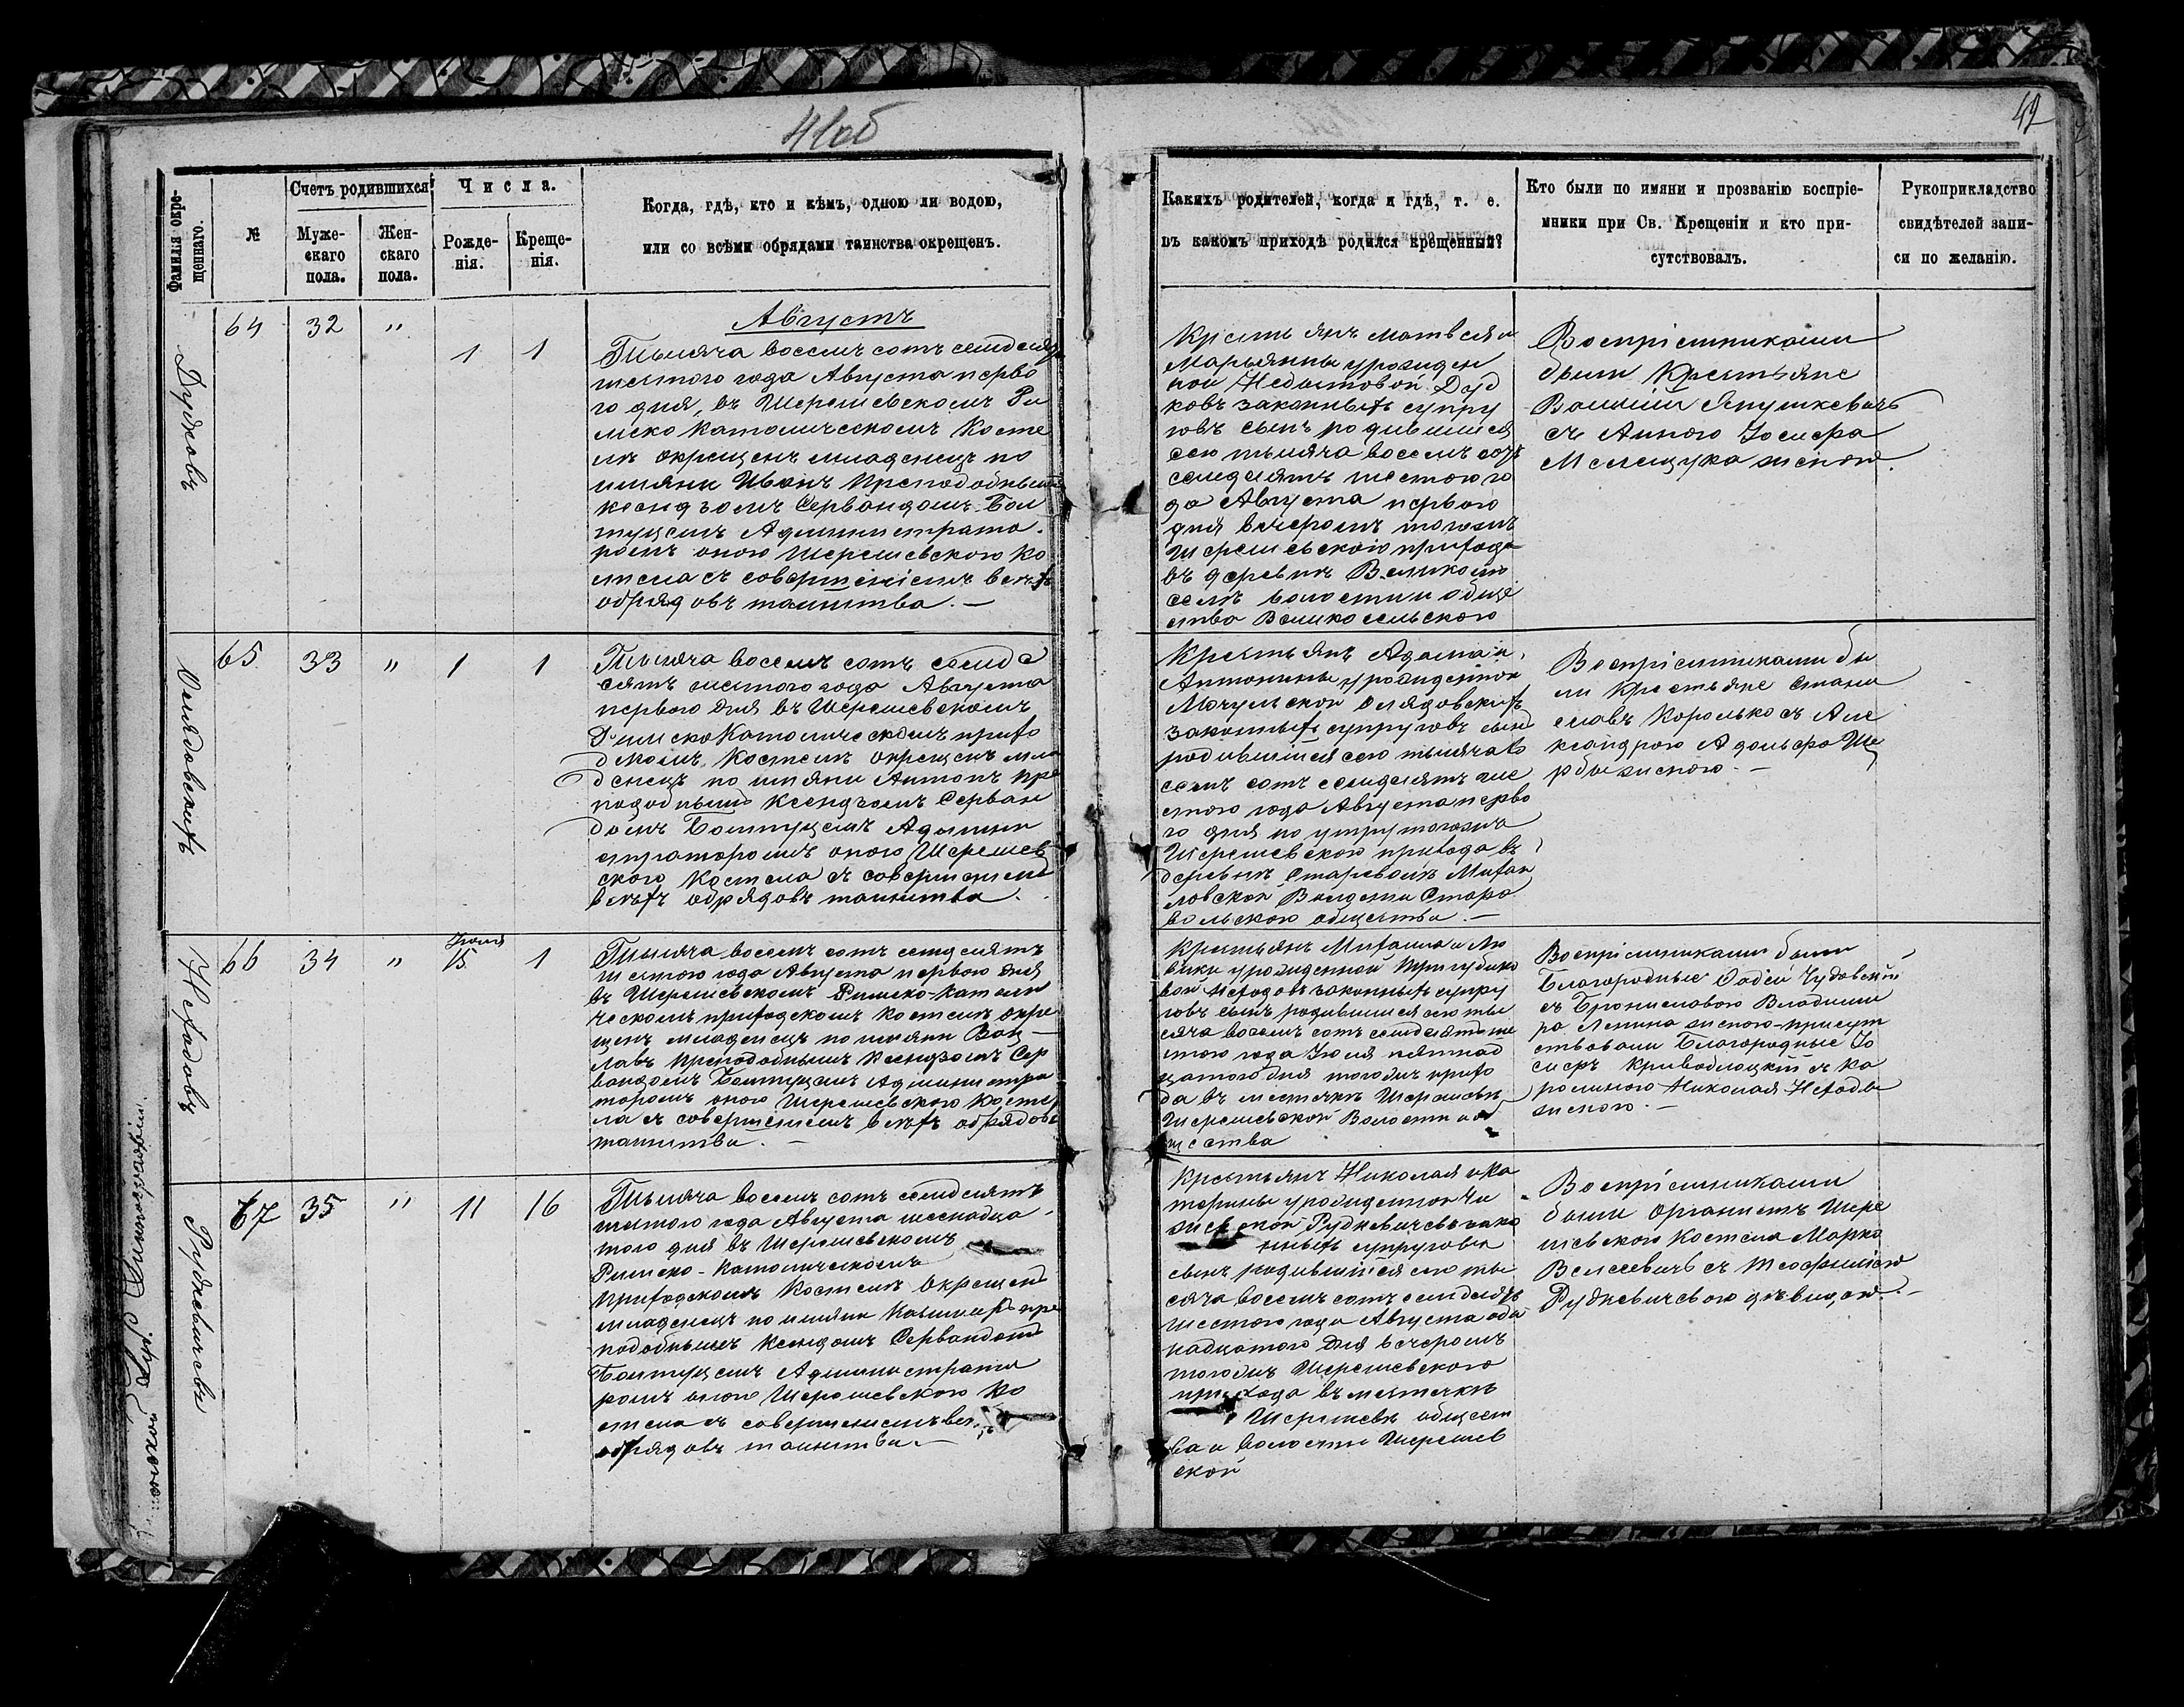 41об
42
Фамилія окрещеннаго.
№
Счетъ родившихся
Мужескаго пола.
Женскаго пола.
Числа.
Рожденія.
Крещенія.
Когда, гдѣ, кто и кѣмъ, одною ли водою,
или со всѣми обрядами таинства окрещенъ.
Какихъ родителей, когда и гдѣ, т. е.
въ какомъ приходѣ родился крещенный?
Кто были по имяни и прозванію воспріе-
мники при Св. Крещеніи и кто при-
сутствовалъ.
Рукоприкладство
свидѣтелей запи-
си по желанію.
Дудковъ
64 32 " 1 1
Августъ
Тысяча восемь сотъ семдесятъ
шестого года Августа перво
го дня, въ Шерешевскомъ Ри
мско Католическомъ Косте
лѣ окрещенъ младенецъ по
имяни Иванъ Преподобнымъ
ксендзомъ Сервандомъ Бол
туцемъ Администрато
ромъ оного Шерешевского Ко
стела съ совершеніемъ всѣхъ
обрядовъ таинства. —
Крестьянъ Матвея и
Марьянны урожден
ной Дуд
ковъ законныхъ супру
говъ сынъ родившійся
сего тысяча восемь сотъ
семдесятъ шестого го
да Августа первого
дня вечеромъ тогожъ
Шерешевского прихода
въ деревнѣ Великомъ
селѣ волости и обще
ства Великосельского
Воспріемниками
были Крестьяне
Янушкевичъ
съ Анною Іосифа
Мелещука женою.
65 33 " 1 1
Тысяча восемь сотъ семде
сятъ шестого года Августа
первого дня въ Шерешевскомъ
Римско Католическомъ прихо
дскомъ Костелѣ окрещенъ мла
денецъ по имяни Антонъ пре
подобнымъ Ксендзомъ Серван
домъ Болтуцемъ Админи
страторомъ оного Шерешев
ского Костела съ совершеніемъ
всѣхъ обрядовъ таинства.
Крестьянъ Адама и
Антонины урожденной
законныхъ супруговъ сынъ
родившійся сего тысяча во
семь сотъ семдесятъ ше
стого года Августа перво
го дня по утру тогожъ
Шерешевского прихода въ
деревнѣ Староволѣ Михай
ловской Волости Старо
вольского общества. —
Воспріемниками бы
ли Крестьяне Стани
славъ Королько съ Але
ксандрою Адольфа Ще
рбы женою. —
Нехадовъ
66 34 " Іюля 15 1
Тысяча восемь сотъ семдесятъ
шестого года Августа первого дня
въ Шерешевскомъ Римско-Католи
ческомъ приходскомъ Костелѣ окре
щенъ младенецъ по имяни Вац
лавъ Преподобнымъ Ксендзомъ Сер
вандомъ Болтуцемъ Администра
торомъ оного Шерешевского Косте
ла съ совершеніемъ всѣхъ обрядовъ
таинства. —
Крестьянъ Михаила и Лю
вики урожденной Тригубико
вой Неходовъ законныхъ супру
говъ сынъ родившійся сего ты
сяча восемь сотъ семдесятъ ше
стого года Іюля пятнад
цатого дня тогожъ прихо
да въ местечкѣ Шерешовѣ
Шерешевской Волости и об
щества
Воспріемниками были
Благородные Фадей Чудовскій
съ Брониславою Владими
ра Ленина женою-присут
ствовали Благородные Іо
сифъ Криводлоцкій съ Ка
ролиною Николая Неходы
женою. —
Рудкевичевъ
67 35 " 11 16
Тысяча восемь сотъ семдесятъ
шестого года Августа шеснадца
того дня въ Шерешевскомъ
Римско-Католическомъ
Приходскомъ Костелѣ Окрещенъ
младенецъ по имяни пре
подобнымъ Ксендзомъ Сервандомъ
Болтуцемъ Администрато
ромъ оного Шерешевского Ко
стела съ совершеніемъ
обрядовъ таинства. —
Крестьянъ Николая и Ка
терины урожденной
Рудкевичевъ зако
нныхъ супруговъ
сынъ родившійся сего ты
сяча восемь сотъ семдесятъ
шестого года Августа оди
надцатого дня вечеромъ
тогожъ Шерешевского
прихода въ местечкѣ
Шерешевѣ общест
ва и волости Шерешев
ской
Воспріемниками
были Органистъ Шере
шевского Костела Марко
съ Теофилією
Рудкевичевою дѣвицою. —